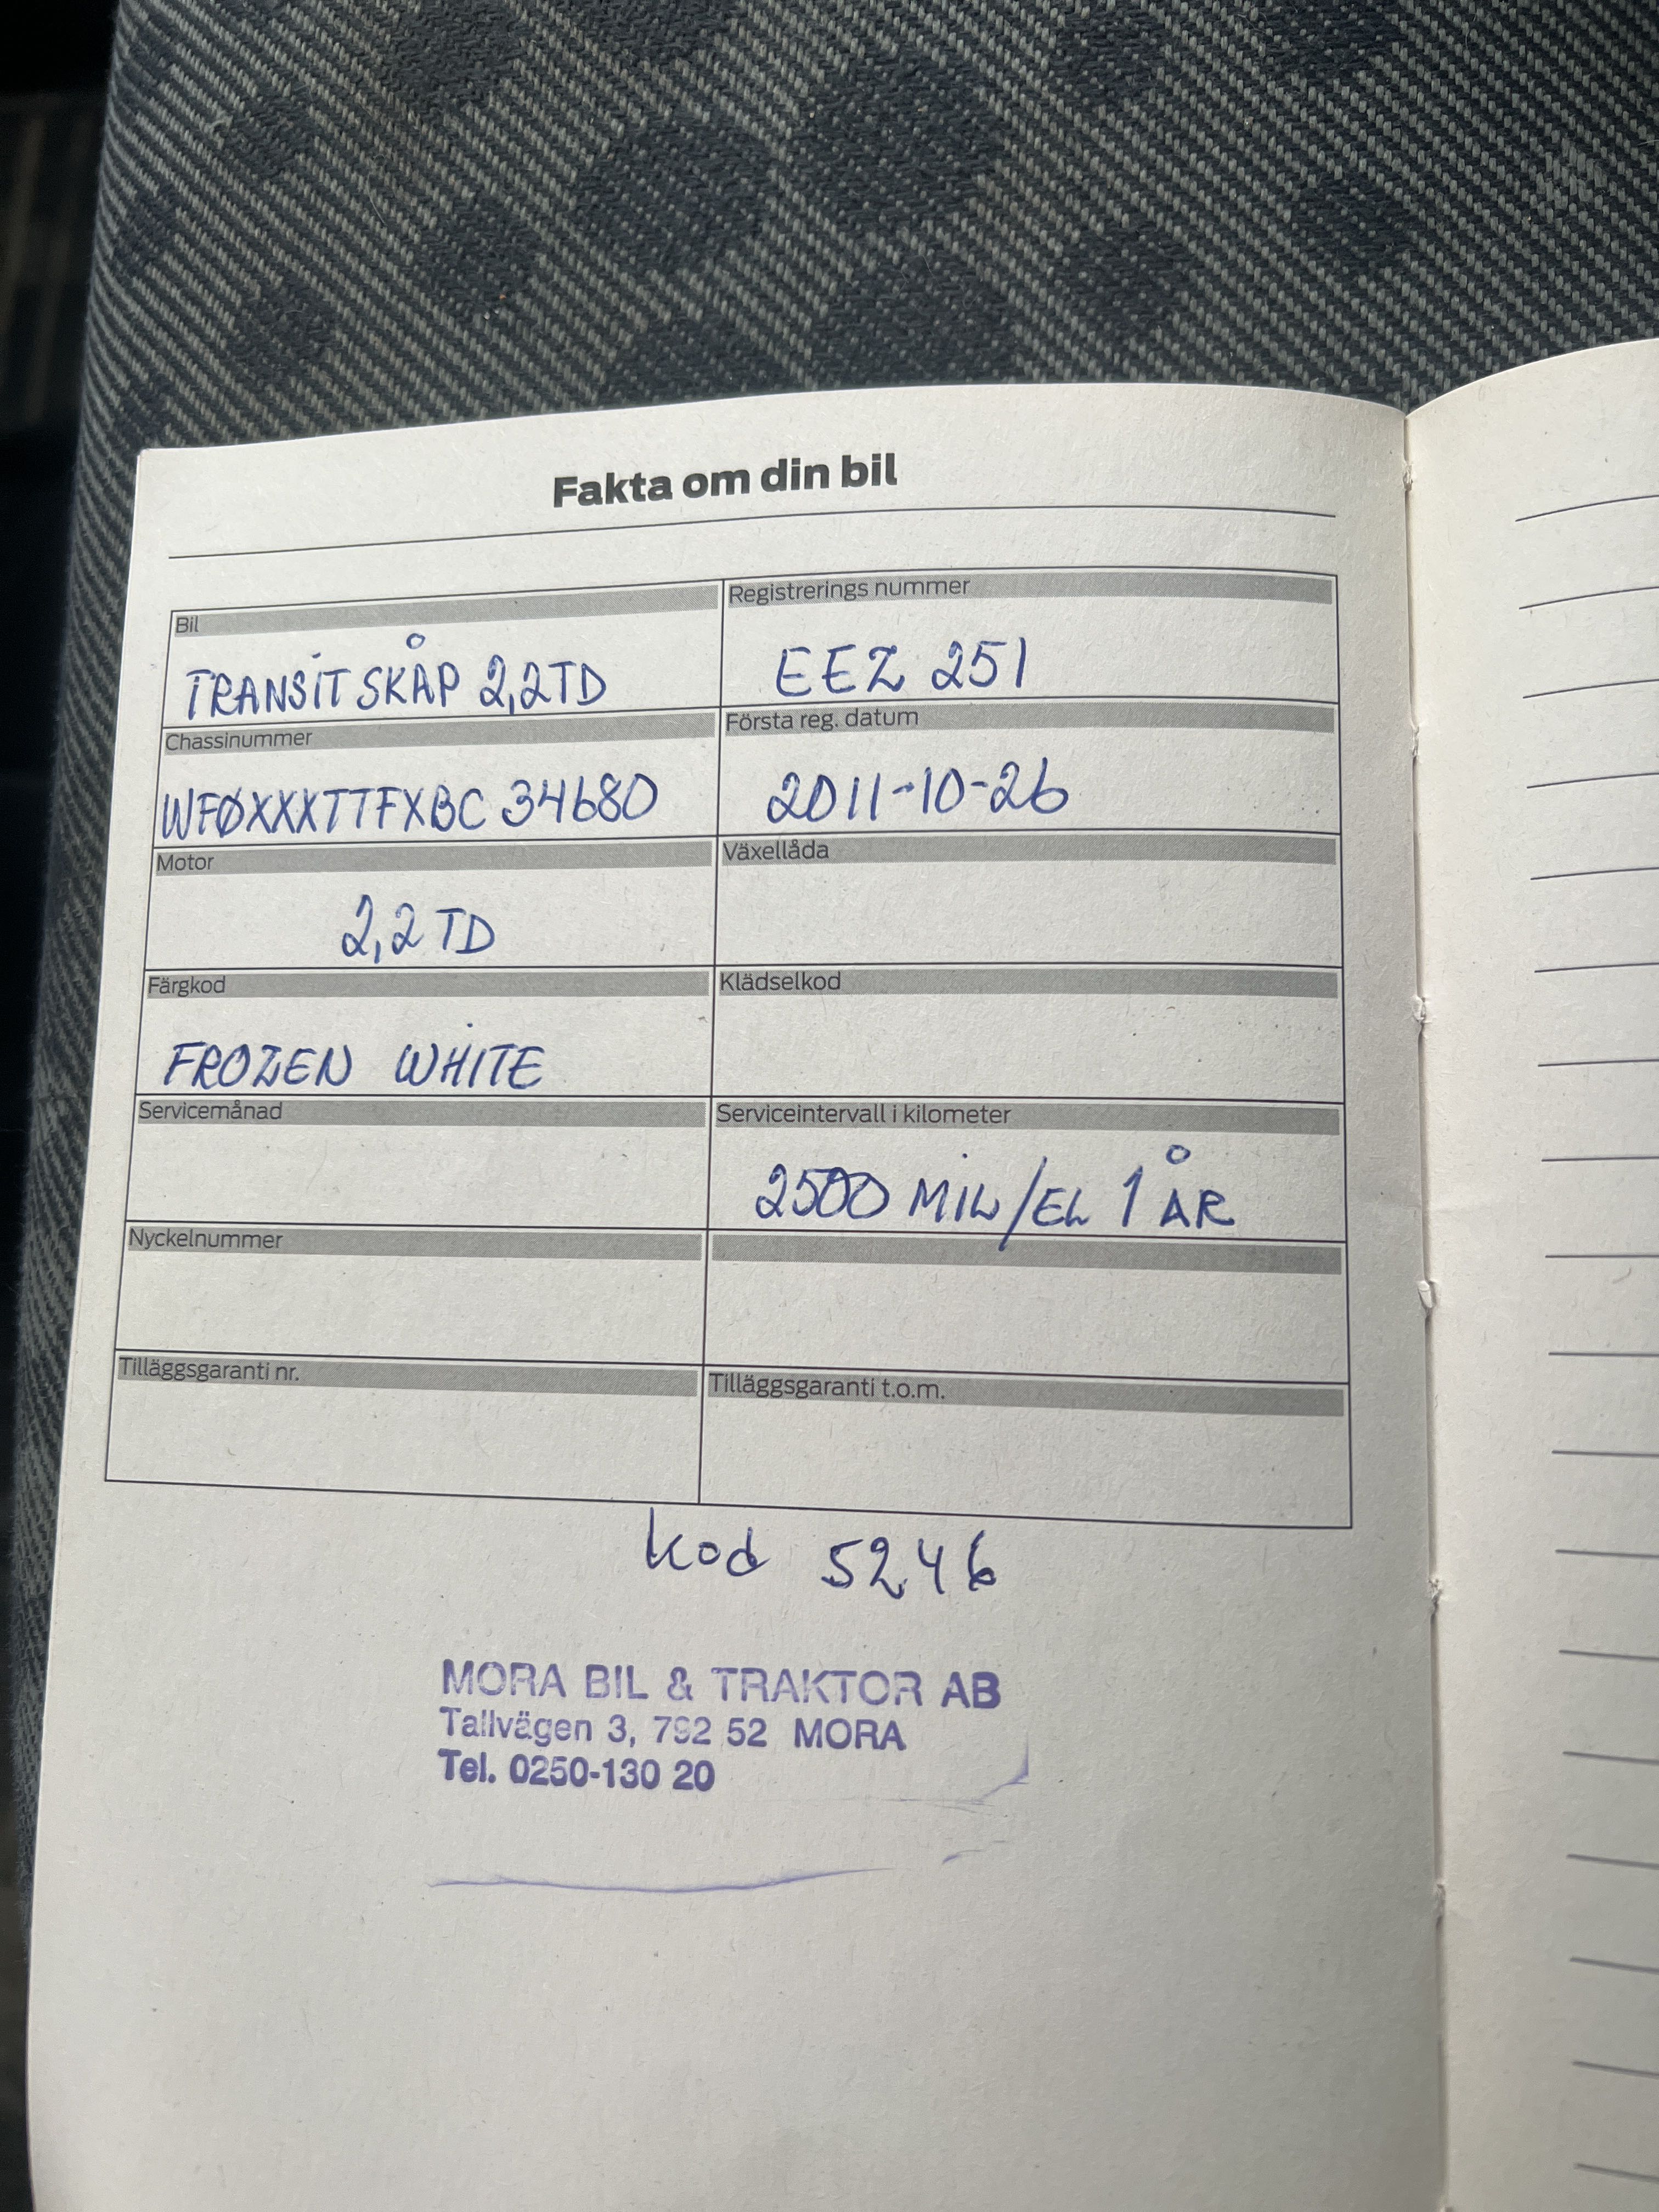 Fakta om din bil
Bil
TRANSIT SKÅP 2,2TD
Registrerings nummer
EEZ 251
Chassinummer
WFØXXXTTFXBC 34680
Första reg. datum
2011-10-26
Motor
2,2 TD
Växellåda
Färgkod
FROZEN WHITE
Klädselkod
Servicemånad
Serviceintervall i kilometer
2500 MIL/EL 1 ÅR
Nyckelnummer
Tilläggsgaranti nr.
Tilläggsgaranti t.o.m.
kod 5246
MORA BIL & TRAKTOR AB
Tallvägen 3, 792 52 MORA
Tel. 0250-130 20